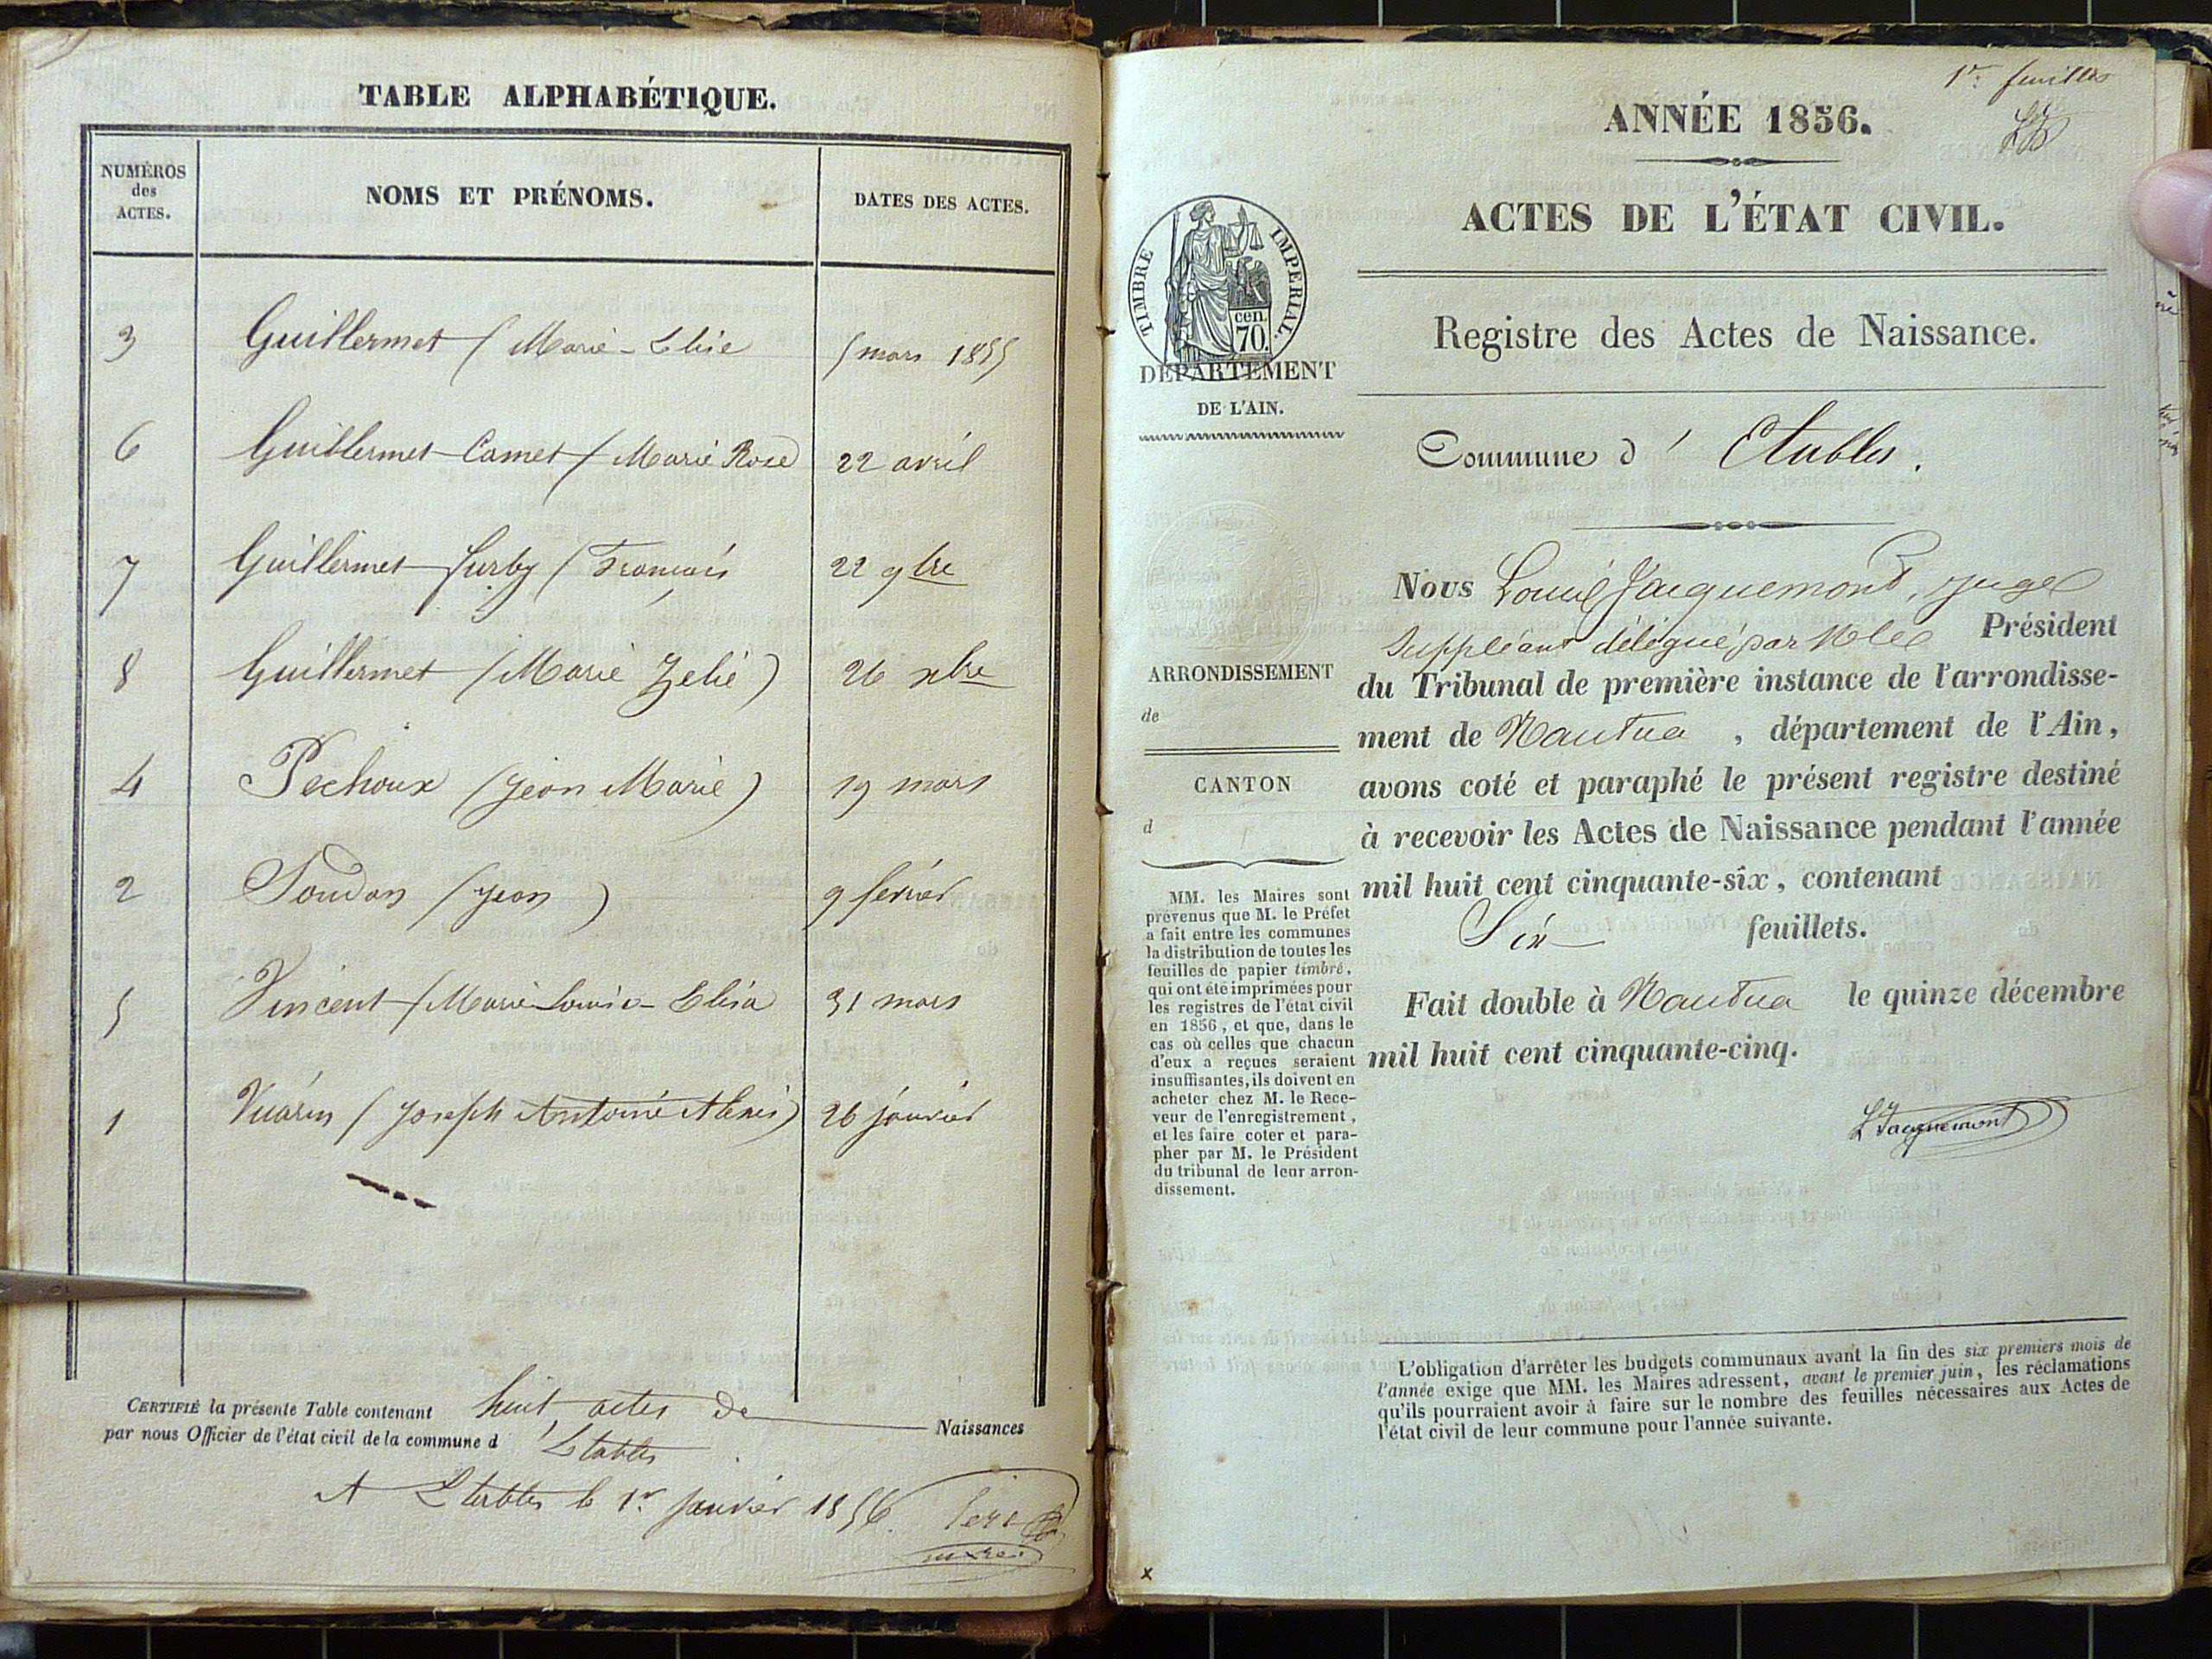 TABLE ALPHABÉTIQUE.
NUMÉROS
des
ACTES.
NOMS ET PRÉNOMS.
DATES DES ACTES.
3 Guillermet (Marie-Elise 5 mars 1855
6 Guillermet-Camet (Marie Rose 22 avril
7 Guillermet-furby (François 22 9bre
8 Guillermet (Marie Zelie) 26 xbre
4 Pechoux (Jean Marie) 19 mars
2 Soudan (Jean) 9 fevrier
5 Vincent (Marie Louise-Elisa 31 mars
1 Vuarin (Joseph Antoine Alexis) 26 janvier
CERTIFIÉ la présente Table contenant huit actes de Naissances
par nous Officier de l'état civil de la commune d'Etables
A Etables le 1er janvier 1856.
maire
1er feuillet
ANNÉE 1856.
ACTES DE L'ÉTAT CIVIL.
TIMBRE IMPERIAL.
cen.
70.
Registre des Actes de Naissance.
DÉPARTEMENT
DE L'AIN.
Commune d' Etables.
Nous Louis Jacquemont, juge
suppléant délégué par Mr le Président
du Tribunal de première instance de l'arrondisse-
ment de Nantua, département de l'Ain,
avons coté et paraphé le présent registre destiné
à recevoir les Actes de Naissance pendant l'année
mil huit cent cinquante-six, contenant
Six feuillets.
Fait double à Nantua le quinze décembre
mil huit cent cinquante-cinq.
LJacquemont
ARRONDISSEMENT
de
CANTON
d
MM. les Maires sont
prévenus que M. le Préfet
a fait entre les communes
la distribution de toutes les
feuilles de papier timbré,
qui ont été imprimées pour
les registres de l'état civil
en 1856, et que, dans le
cas où celles que chacun
d'eux a reçues seraient
insuffisantes, ils doivent en
acheter chez M. le Rece-
veur de l'enregistrement,
et les faire coter et para-
pher par M. le Président
du tribunal de leur arron-
dissement.
L'obligation d'arrêter les budgets communaux avant la fin des six premiers mois de
l'année exige que MM. les Maires adressent, avant le premier juin, les réclamations
qu'ils pourraient avoir à faire sur le nombre des feuilles nécessaires aux Actes de
l'état civil de leur commune pour l'année suivante.
x